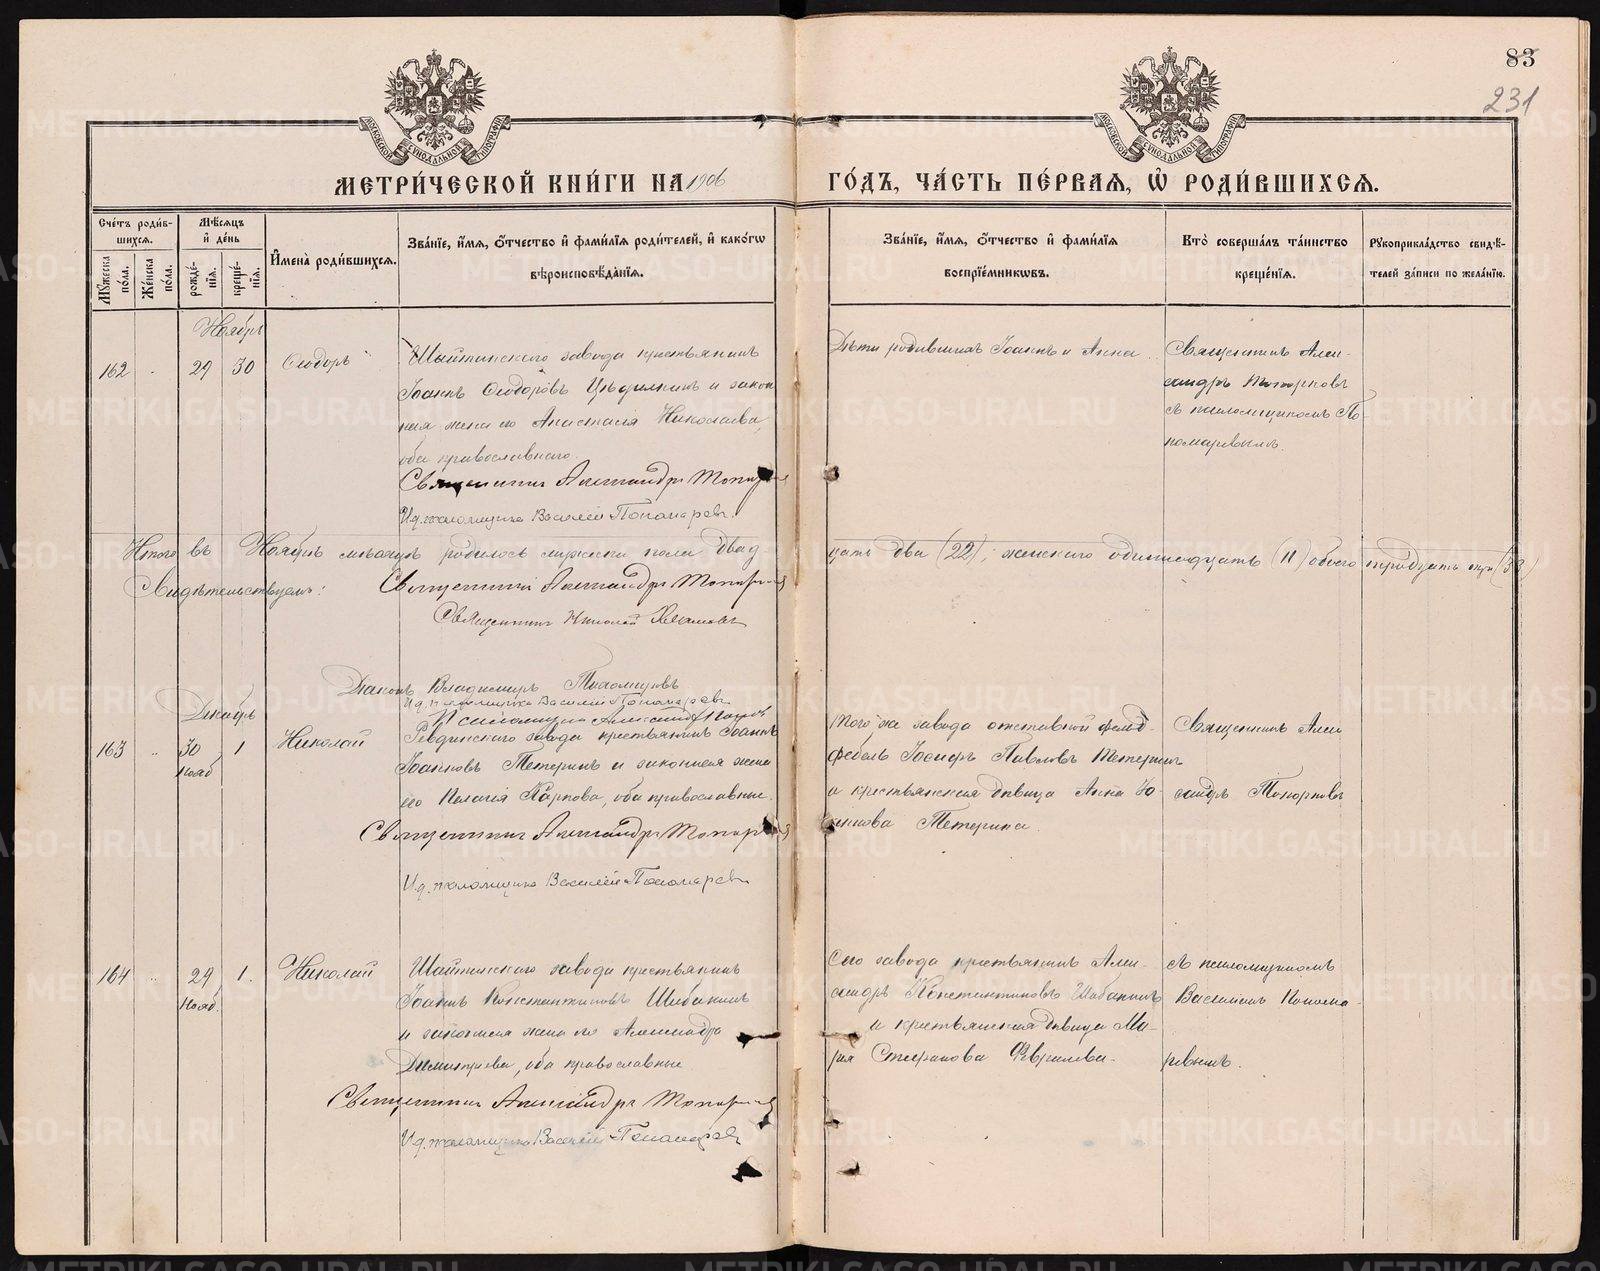 83
231
МЕТРИ́ЧЕСКОЙ КНИ́ГИ НА 1906 ГО́ДЪ, ЧА́СТЬ ПЕ́РВАЯ, Ѡ҆ РОДИ́ВШИХСЯ.
Сче́тъ роди́вшихся.
Му́жеска по́ла.
Же́нска по́ла.
Мѣ́сяцъ и҆ де́нь
рожде́нїя.
креще́нїя.
И҆мена̀ роди́вшихся.
Зва́нїе, и҆́мя, о҆́тчество и҆ фами́лїя роди́телей, и҆ како́гѡ
вѣроисповѣ́данїя.
Зва́нїе, и҆́мя, о҆́тчество и҆ фами́лїя
воспрїе́мникѡвъ.
Кто̀ соверша́лъ та́инство
креще́нїя.
Рꙋкоприкла́дство свидѣ́-
телей за́писи по жела́нїю.
Ноябрь
162 29 30 Ѳеодоръ
Шайтанскаго завода крестьянинъ
Іоаннъ Ѳеодоровъ и закон
ная жена его Анастасія Николаева,
оба православнаго.
Священникъ Александръ Топорковъ
И.д. псаломщика Василій Пономаревъ
Дѣти родившихъ Іоаннъ и Анна.
Священникъ Алек-
сандръ Топорковъ
съ псаломщикомъ По-
номаревымъ
Итого въ Ноябрѣ мѣсяцѣ родилось мужеска пола двад-
цать два (22), женскаго одиннадцать (11) обоего тридцать три (33)
Свидѣтельствуемъ: Священникъ Александръ Топорковъ
Священникъ Николай
Діаконъ Владимиръ Тихомировъ
И.д. псаломщика Василій Пономаревъ
Псаломщикъ Александръ
Декабрь
163 30 нояб 1 Николай
Ревдинскаго завода крестьянинъ Іоаннъ
Іоанновъ Тетеринъ и законная жена
его Пелагія Карпова, оба православные.
Священникъ Александръ Топорковъ
И.д. псаломщика Василій Пономаревъ
Того же завода отставной фельд-
фебель Іосифъ Павловъ Тетеринъ
и крестьянская дѣвица Анна Іо-
аннова Тетерина.
Священникъ Алек
сандръ Топорковъ
164 29 нояб. 1. Николай
Шайтанскаго завода крестьянинъ
Іоаннъ Константиновъ Шибакинъ
и законная жена его Александра
Димитріева, оба православные
Священникъ Александръ Топорковъ
И.д. псаломщика Василій Пономаревъ
Сего завода крестьянинъ Алек-
сандръ Константиновъ Шибакинъ
и крестьянская дѣвица Ма-
рія Стефанова
съ псаломщикомъ
Василіемъ Понома-
ревымъ.
METRIKI.GASO-URAL.RU